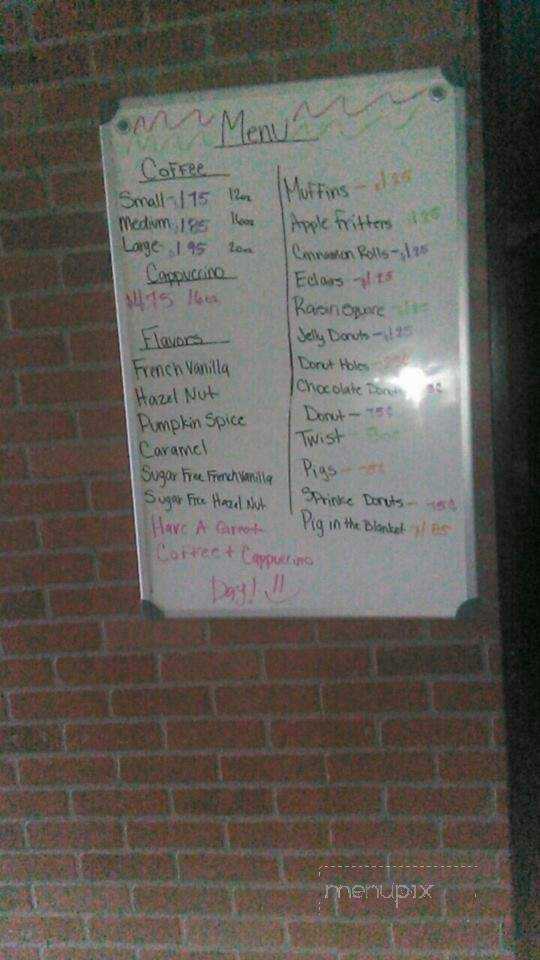 Menu
Coffee
Small - $1.75 12oz
Medium $1.85 16oz
Large - $1.95 20oz
Cappuccino
$4.75 16oz
Flavors
French Vanilla
Hazel Nut
Pumpkin Spice
Caramel
Sugar Free French Vanilla
Sugar Free Hazel Nut
Have A
Coffee + Cappuccino
Day! !!
Muffins - $1.25
Apple Fritters
Cinnamon Rolls - $1.25
Eclairs - $1.25
Raisin Square
Jelly Donuts - $1.25
Donut Holes
Chocolate Donut
Donut - 75¢
Twist
Pigs
Sprinke Donuts - 75¢
Pig in the Blanket
menupix